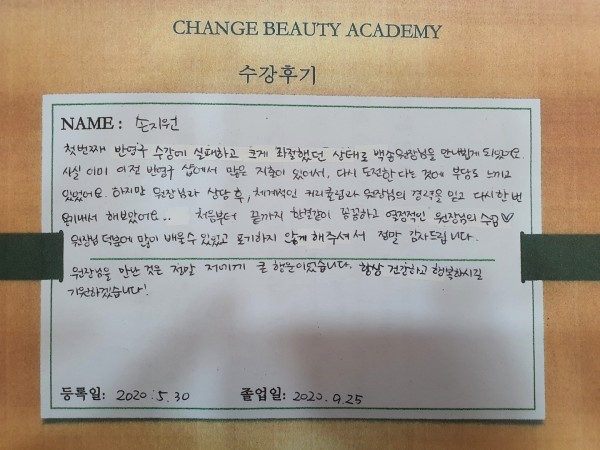 CHANGE BEAUTY ACADEMY
수강후기
NAME : 손지원
첫번째 반영구 수강에 실패하고 크게 좌절했던 상태로 백송원장님을 만나뵙게 되었어요.
사실 이미 이전 반영구 샵에서 많은 지출이 있어서, 다시 도전한다는 것에 부담도 느끼고
있었어요. 하지만 원장님과 상담 후, 체계적인 커리큘럼과 원장님의 경력을 믿고 다시 한 번
힘내서 해보았어요.. 처음부터 끝까지 한결같이 꼼꼼하고 열정적인 원장님의 수업♡
원장님 덕분에 많이 배울수 있었고 포기하지 않게 해주셔서 정말 감사드립니다.
원장님을 만난 것은 정말 저에게 큰 행운이었습니다. 항상 건강하고 행복하시길
기원하겠습니다!
등록일: 2020.5.30 졸업일: 2020.9.25